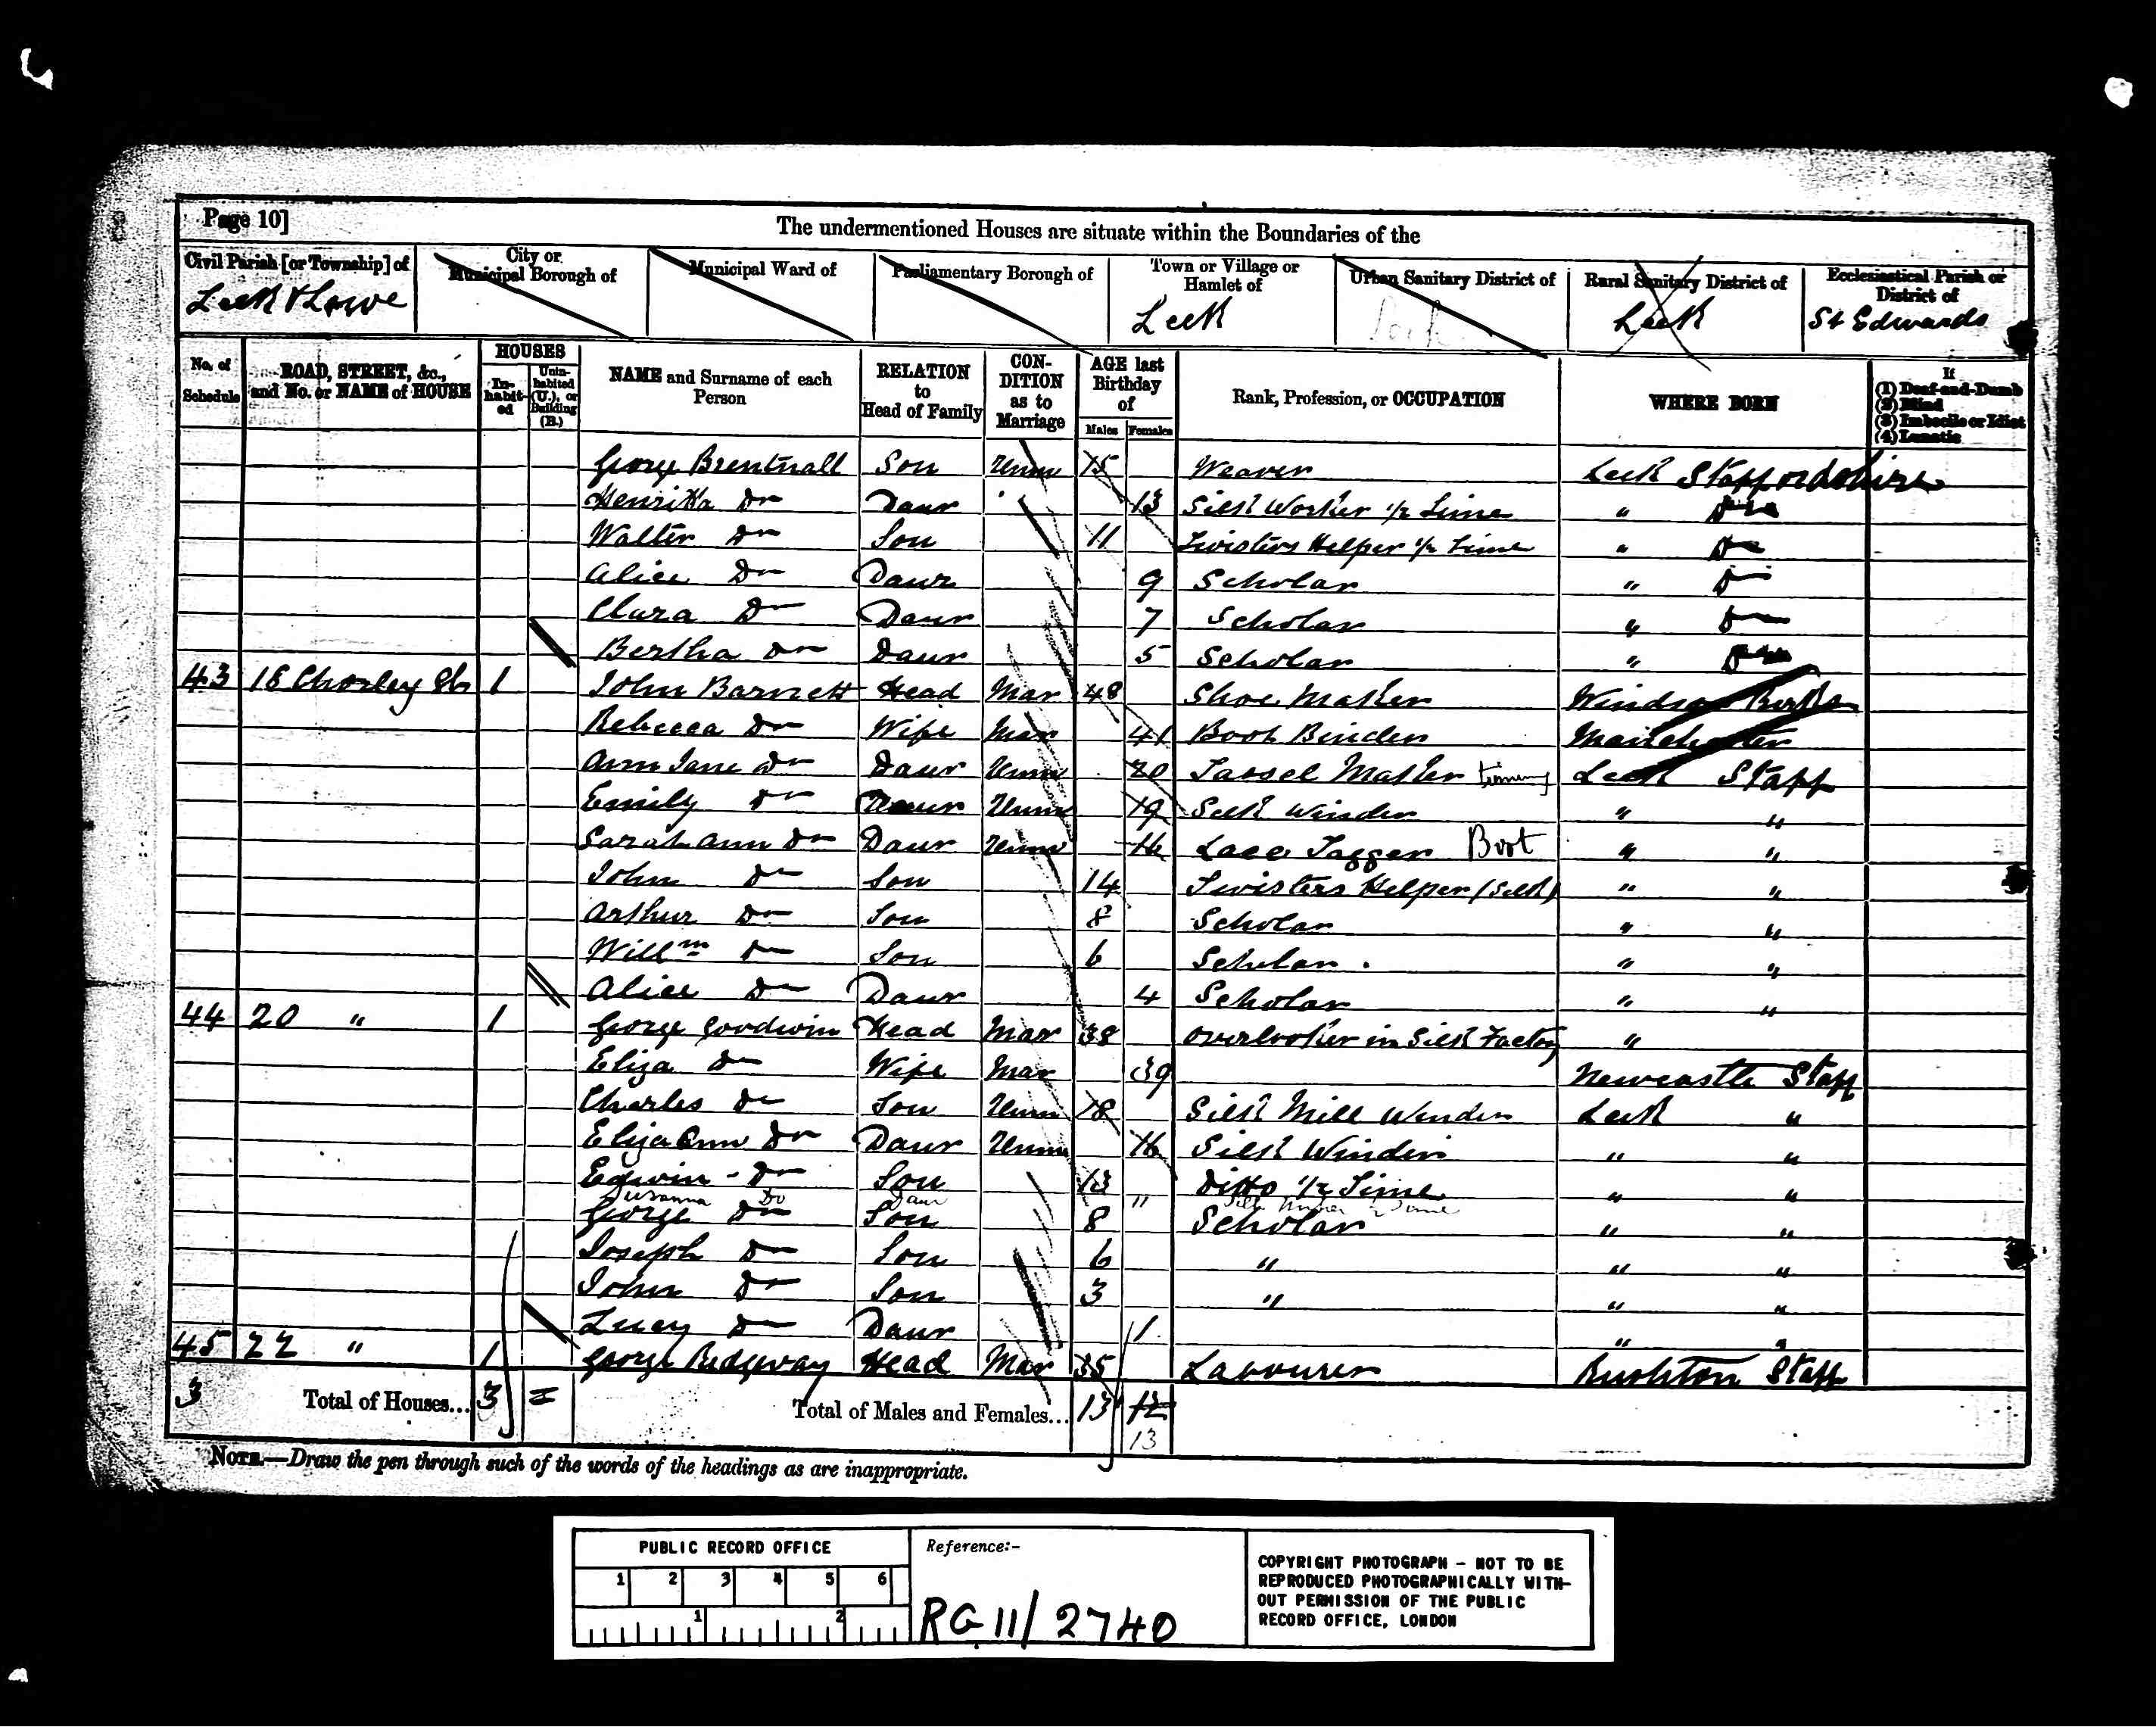 Page 10]
The undermentioned Houses are situate within the Boundaries of the
Civil Parish [or Township] of
City or Municipal Borough of
Municipal Ward of
Parliamentary Borough of
Town or Village or Hamlet of
Urban Sanitary District of
Rural Sanitary District of
Ecclesiastical Parish or District of
Leek & Lowe Leek Leek Leek St Edwards
No. of Schedule
ROAD, STREET, &c., and No. or NAME of HOUSE
HOUSES
In-habit-ed
Unin-habited (U.), or Building (B.)
NAME and Surname of each Person
RELATION to Head of Family
CON-DITION as to Marriage
AGE last Birthday of
Males Females
Rank, Profession, or OCCUPATION
WHERE BORN
If
(1) Deaf-and-Dumb
(2) Blind
(3) Imbecile or Idiot
(4) Lunatic
George Brentnall Son Unm 15 Weaver Leek Staffordshire
Henritta Do Daur 13 Silk Worker 1/2 Time " Do
Walter Do Son 11 Twisters Helper 1/2 Time " Do
Alice Do Daur 9 Scholar " Do
Clara Do Daur 7 Scholar " Do
Bertha Do Daur 5 Scholar " Do
43 18 Chorley St 1 John Barnett Head Mar 48 Shoe Maker Windsor Berks
Rebecca Do Wife Mar 41 Boot Binder Manchester
Ann Jane Do Daur Unm 20 Tassel Maker trimming Leek Staff
Emily Do Daur Unm 19 Silk Winder " "
Sarah Ann Do Daur Unm 16 Lace Tagger Boot " "
John Do Son 14 Twisters Helper (Silk) " "
Arthur Do Son 8 Scholar " "
Willm Do Son 6 Scholar . " "
Alice Do Daur 4 Scholar " "
44 20 " 1 George Goodwin Head Mar 38 Overlooker in Silk Factory "
Eliza Do Wife Mar 39 Newcastle Staff
Charles Do Son Unm 18 Silk Mill Winder Leek "
Eliza Ann Do Daur Unm 16 Silk Winder " "
Edwin - Do Son 13 Ditto 1/2 Time " "
Susanna Do Daur 11 Silk Winder 1/2 Time
George Do Son 8 Scholar " "
Joseph Do Son 6 " " "
John Do Son 3 " " "
Lucy Do Daur 1 " "
45 22 " 1 George Ridgway Head Mar 35 Labourer Rushton Staff
3 Total of Houses... 3 = Total of Males and Females... 13 12
13
NOTE.—Draw the pen through such of the words of the headings as are inappropriate.
PUBLIC RECORD OFFICE
1 2 3 4 5 6
1 2
Reference:-
RG 11/2740
COPYRIGHT PHOTOGRAPH - NOT TO BE
REPRODUCED PHOTOGRAPHICALLY WITH-
OUT PERMISSION OF THE PUBLIC
RECORD OFFICE, LONDON